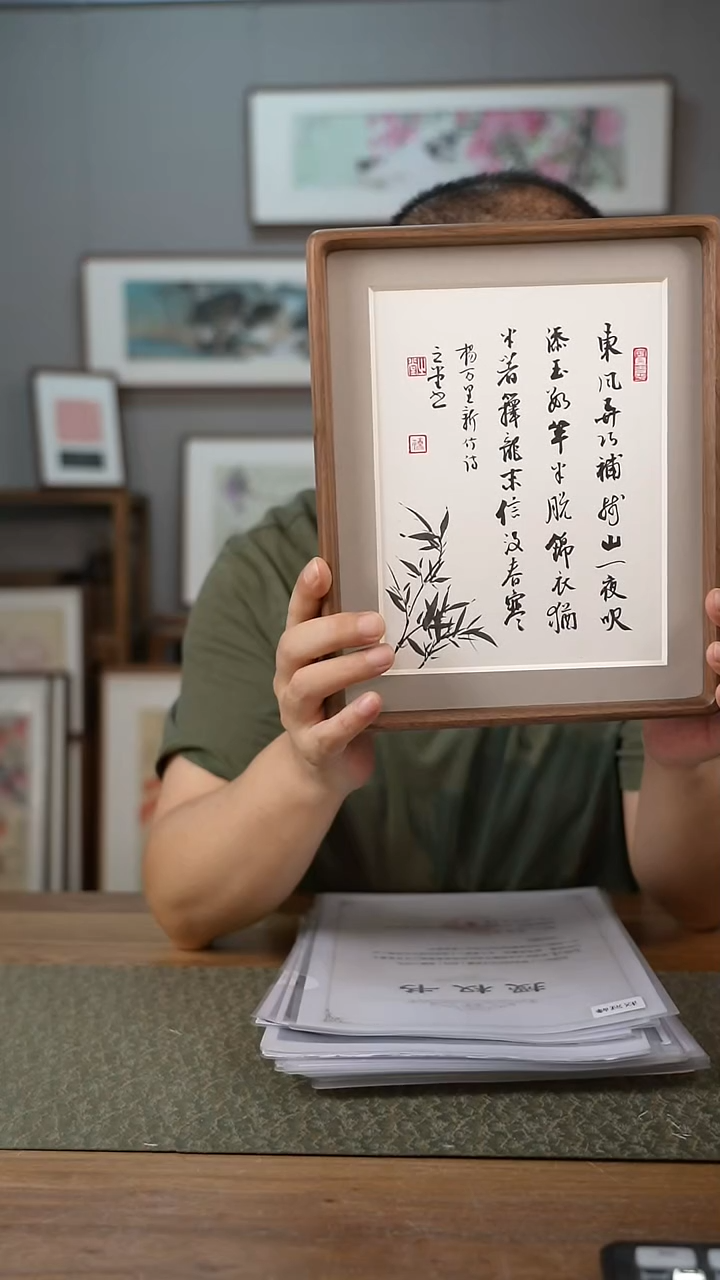 東风弄巧補残山一夜吹
添玉数竿半脱錦衣猶
半著籜龍未信没春寒
楊万里新竹诗
授权书